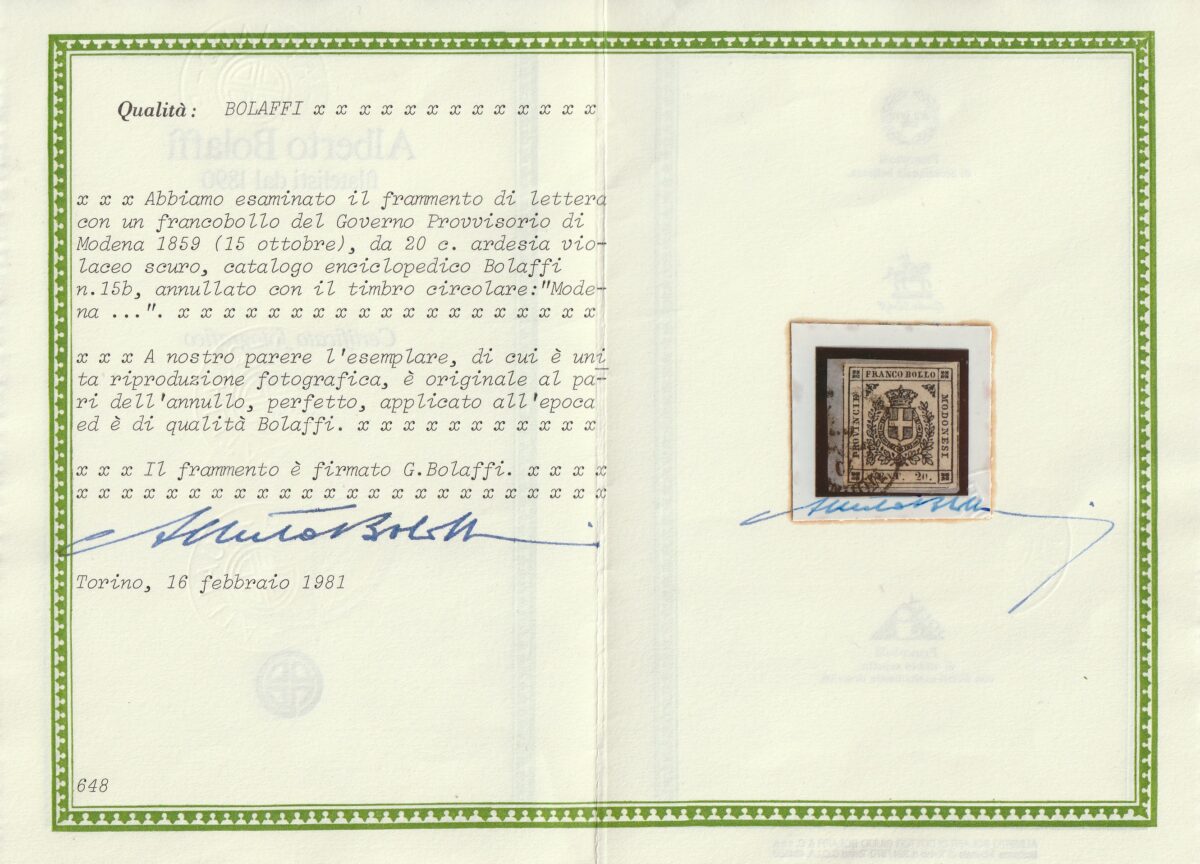 Qualità: BOLAFFI x x x x x x x x x x x x x
x x x Abbiamo esaminato il frammento di lettera
con un francobollo del Governo Provvisorio di
Modena 1859 (15 ottobre), da 20 c. ardesia vio-
laceo scuro, catalogo enciclopedico Bolaffi
n.15b, annullato con il timbro circolare:"Mode-
na ...". x x x x x x x x x x x x x x x x x x x
x x x A nostro parere l'esemplare, di cui è uni
ta riproduzione fotografica, è originale al pa-
ri dell'annullo, perfetto, applicato all'epoca
ed è di qualità Bolaffi. x x x x x x x x x x x
x x x Il frammento è firmato G.Bolaffi. x x x x
x x x x x x x x x x x x x x x x x x x x x x x x
Torino, 16 febbraio 1981
648
FRANCO BOLLO
PROVINCIE
MODONESI
20.